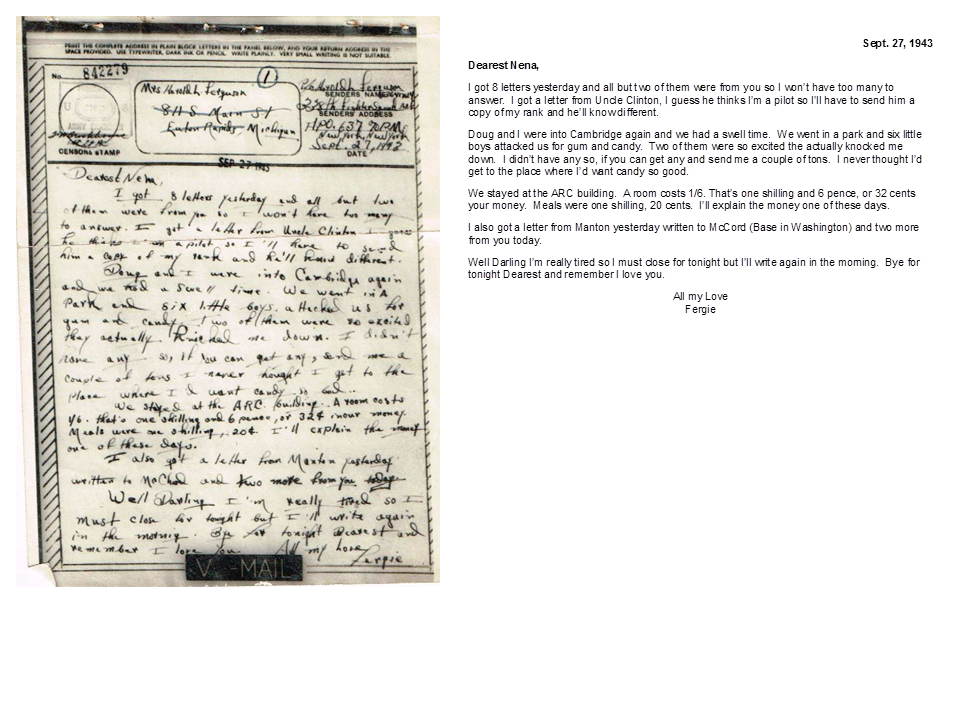 PRINT THE COMPLETE ADDRESS IN PLAIN BLOCK LETTERS IN THE PANEL BELOW, AND YOUR RETURN ADDRESS IN THE
SPACE PROVIDED. USE TYPEWRITER, DARK INK OR PENCIL. WRITE PLAINLY. VERY SMALL WRITING IS NOT SUITABLE.
No. 842279
1
Mrs Harold L Ferguson
811 S Main St
Eaton Rapids, Michigan
Harold L Ferguson
SENDERS NAME
SENDERS ADDRESS
APO 637
New York, New York
Sept. 27, 1943
DATE
CENSORS STAMP
SEP 27 1943
Dearest Nena,
I got 8 letters yesterday and all but two
of them were from you so I won't have too many
to answer. I got a letter from Uncle Clinton I guess
he thinks I'm a pilot so I'll have to send
him a copy of my rank and he'll know different.
Doug and I were into Cambridge again
and we had a swell time. We went in a
Park and six little boys attacked us for
gum and candy. Two of them were so excited
they actually knocked me down. I didn't
have any so, if you can get any, send me a
couple of tons I never thought I get to the
place where I'd want candy so bad.
We stayed at the ARC. building. A room costs
1/6. that's one shilling and 6 pence, or 32¢ in our money.
Meals were one shilling, 20¢ I'll explain the money
one of these days.
I also got a letter from Manton yesterday
written to McChod and two more from you today.
Well Darling I'm really tired so I
must close for tonight but I'll write again
in the morning. Bye for tonight Dearest and
remember I love you. All my Love
Fergie
V-MAIL
Sept. 27, 1943
Dearest Nena,
I got 8 letters yesterday and all but two of them were from you so I won't have too many to
answer. I got a letter from Uncle Clinton, I guess he thinks I'm a pilot so I'll have to send him a
copy of my rank and he'll know different.
Doug and I were into Cambridge again and we had a swell time. We went in a park and six little
boys attacked us for gum and candy. Two of them were so excited the actually knocked me
down. I didn't have any so, if you can get any and send me a couple of tons. I never thought I'd
get to the place where I'd want candy so good.
We stayed at the ARC building. A room costs 1/6. That's one shilling and 6 pence, or 32 cents
your money. Meals were one shilling, 20 cents. I'll explain the money one of these days.
I also got a letter from Manton yesterday written to McCord (Base in Washington) and two more
from you today.
Well Darling I'm really tired so I must close for tonight but I'll write again in the morning. Bye for
tonight Dearest and remember I love you.
All my Love
Fergie